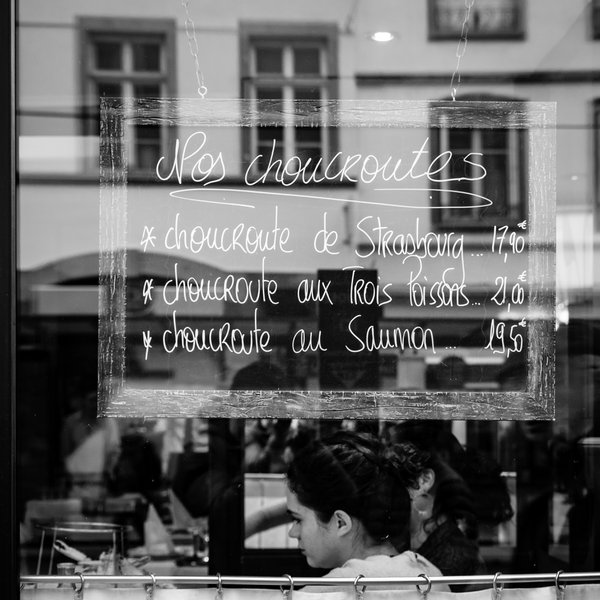 Nos choucroutes
* choucroute de Strasbourg... 17,90€
* choucroute aux Trois Poissons... 21,00€
* choucroute au Saumon... 19,50€